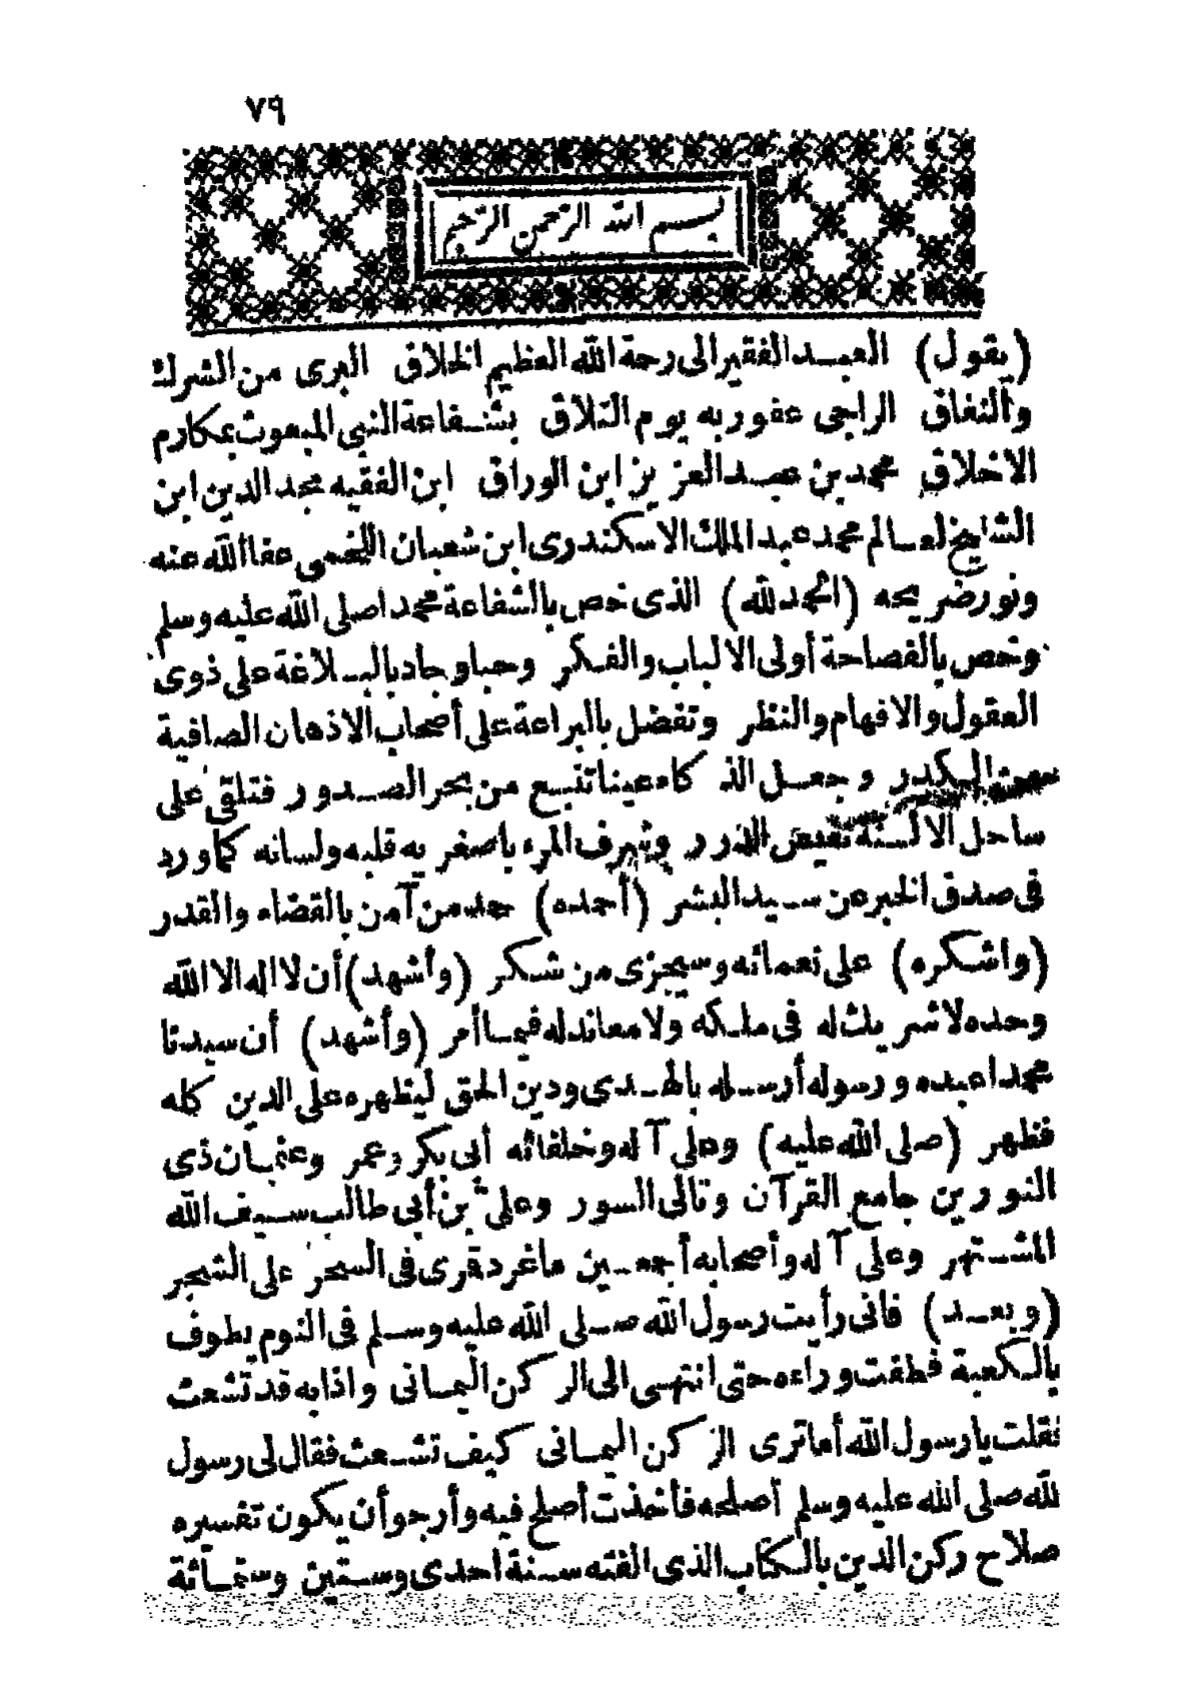 ٧٩
بسم الله الرحمن الرحيم
(يقول) العبد الفقير الى رحمة الله العظيم الخلاق البرى من الشرك
والنفاق الراجى عفو ربه يوم التلاق بشفاعة النبى المبعوث بمكارم
الاخلاق محمد بن عبد العزيز ابن الوراق ابن الفقيه مجد الدين ابن
الشايخ لعالم محمد عبد الملك الاسكندرى ابن شعبان اللخمى عفا الله عنه
ونور ضريحه (الحمد لله) الذى خص بالشفاعة محمدا صلى الله عليه وسلم
وخص بالفصاحة أولى الالباب والفكر وحبا وجاد بالبلاغة على ذوى
العقول والافهام والنظر وتفضل بالبراعة على أصحاب الاذهان الصافية
الكدر وجعل الذكاء عينا تنبع من بحر الصدور فتلقى على
ساحل الالسنة نفيض الدرر وشرف المرء باصغريه قلبه ولسانه كما ورد
فى صدق الخبر عن سيد البشر (أحمده) حمد من آمن بالقضاء والقدر
(واشكره) على نعمائه وسيجزى من شكر (وأشهد) أن لا اله الا الله
وحده لا شريك له فى ملكه ولا معاند له فيما أمر (وأشهد) أن سيدنا
محمدا عبده ورسوله أرسله بالهدى ودين الحق ليظهره على الدين كله
فظهر (صلى الله عليه) وعلى آله وخلفائه أبى بكر وعمر وعثمان ذى
النورين جامع القرآن وتالى السور وعلى بن أبى طالب سيف الله
المشتهر وعلى آله وأصحابه أجمعين ما غرد قرى فى السحر على الشجر
(وبعد) فانى رأيت رسول الله صلى الله عليه وسلم فى النوم يطوف
بالكعبة فطفت وراءه حتى انتهى الى الركن اليمانى واذا به قد تشعث
فقلت يا رسول الله أما ترى الركن اليمانى كيف تشعث فقال لى رسول
لله صلى الله عليه وسلم أصلحه فأخذت أصلح فيه وأرجو أن يكون تفسيره
صلاح ركن الدين بالكتاب الذى الفته سنة احدى وستين وستمائة